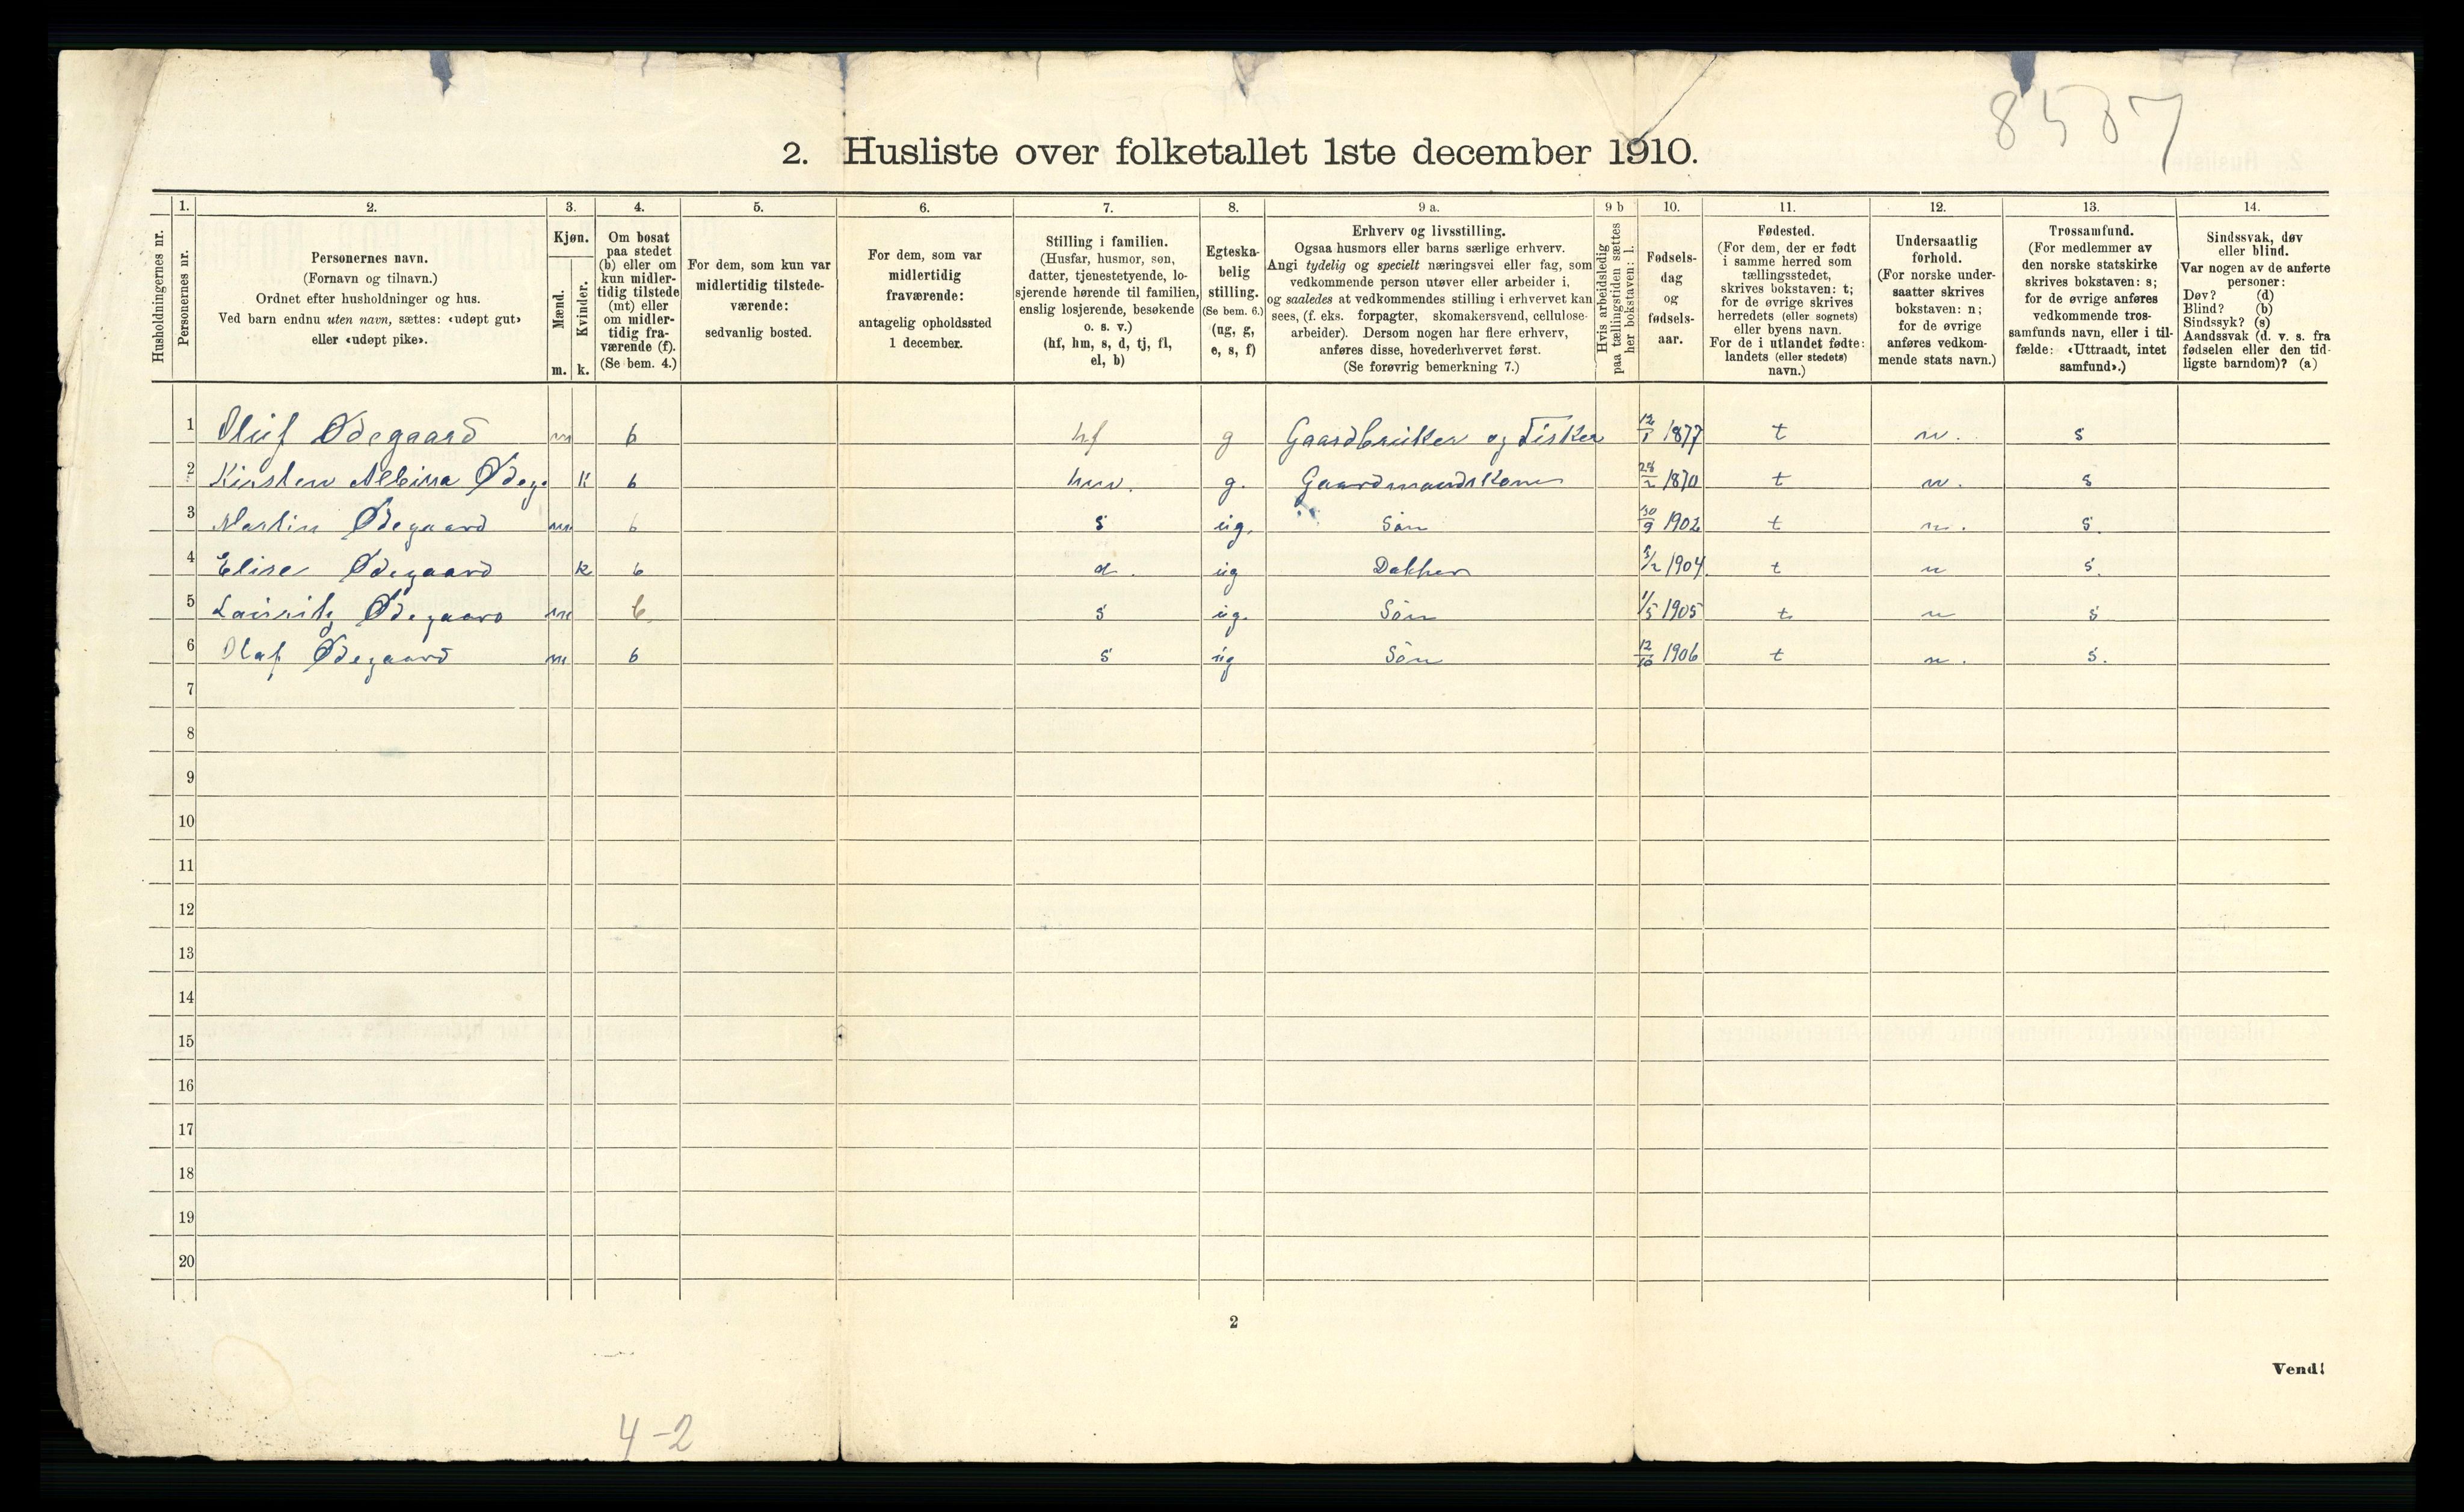 8587
2. Husliste over folketallet 1ste december 1910.
Husholdningernes nr.
1.
Personernes nr.
2.
Personernes navn.
(Fornavn og tilnavn.)
Ordnet efter husholdninger og hus.
Ved barn endnu uten navn, sættes: «udøpt gut»
eller «udøpt pike».
3.
Kjøn.
Mænd.
Kvinder.
m. k.
4.
Om bosat
paa stedet
(b) eller om
kun midler-
tidig tilstede
(mt) eller
om midler-
tidig fra-
værende (f).
(Se bem. 4.)
5.
For dem, som kun var
midlertidig tilstede-
værende:
sedvanlig bosted.
6.
For dem, som var
midlertidig
fraværende:
antagelig opholdssted
1 december.
7.
Stilling i familien.
(Husfar, husmor, søn,
datter, tjenestetyende, lo-
sjerende hørende til familien,
enslig losjerende, besøkende
o. s. v.)
(hf, hm, s, d, tj, fl,
el, b)
8.
Egteska-
belig
stilling.
(Se bem. 6.)
(ug, g,
e, s, f)
9 a.
Erhverv og livsstilling.
Ogsaa husmors eller barns særlige erhverv.
Angi tydelig og specielt næringsvei eller fag, som
vedkommende person utøver eller arbeider i,
og saaledes at vedkommendes stilling i erhvervet kan
sees, (f. eks. forpagter, skomakersvend, cellulose-
arbeider). Dersom nogen har flere erhverv,
anføres disse, hovederhvervet først.
(Se forøvrig bemerkning 7.)
9 b
Hvis arbeidsledig
paa tællingstiden sættes
her bokstaven: l.
10.
Fødsels-
dag
og
fødsels-
aar.
11.
Fødested.
(For dem, der er født
i samme herred som
tællingsstedet,
skrives bokstaven: t;
for de øvrige skrives
herredets (eller sognets)
eller byens navn.
For de i utlandet fødte:
landets (eller stedets)
navn.)
12.
Undersaatlig
forhold.
(For norske under-
saatter skrives
bokstaven: n;
for de øvrige
anføres vedkom-
mende stats navn.)
13.
Trossamfund.
(For medlemmer av
den norske statskirke
skrives bokstaven: s;
for de øvrige anføres
vedkommende tros-
samfunds navn, eller i til-
fælde: «Uttraadt, intet
samfund».)
14.
Sindssvak, døv
eller blind.
Var nogen av de anførte
personer:
Døv? (d)
Blind? (b)
Sindssyk? (s)
Aandssvak (d. v. s. fra
fødselen eller den tid-
ligste barndom)? (a)
1 Oluf Ødegaard m b hf g Gaardbruker og Fisker 12/1 1877 t n. s
2 Kirsten Albina Ødeg. k b hm. g. Gaardmandskone 28/2 1870 t n. s
3 Martin Ødegaard m b s ug. Søn 30/9 1902 t n. s.
4 Elise Ødegaard k b d. ug Datter 1904 t n s.
5 Lauritz Ødegaard m b. s ug. Søn 1/5 1905 t n s
6 Olaf Ødegaard m b s ug Søn 12/10 1906 t n. s.
7
8
9
10
11
12
13
14
15
16
17
18
19
20
2
Vend!
4-2